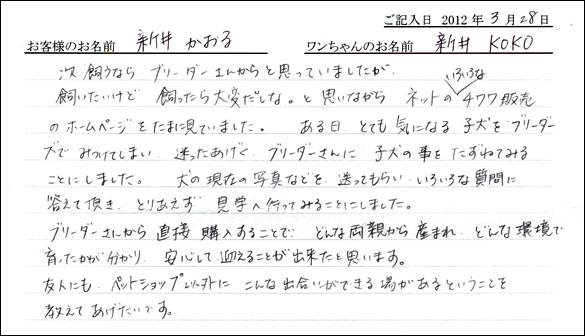 ご記入日 2012年 3月28日
お客様のお名前 新井 かおる ワンちゃんのお名前 新井 KOKO
次 飼うなら ブリーダーさんからと思っていましたが、
いろいろな
飼いたいけど 飼ったら大変だしな。と 思いながら ネットの 販売
のホームページをたまに見ていました。 ある日 とても 気になる 子犬を ブリーダー
ズで みつけてしまい 迷ったあげく ブリーダーさんに 子犬の事を たずねてみる
ことにしました。 犬の現在の写真などを 送ってもらい いろいろな質問に
答えて頂き、とりあえず 見学へ行ってみることにしました。
ブリーダーさんから 直接 購入することで どんな両親から 産まれ、どんな環境で
育ったかが分かり、安心して迎えることが出来たと思います。
友人にも、ペットショップ以外に こんな出合いができる場があるということを
教えてあげたいです。